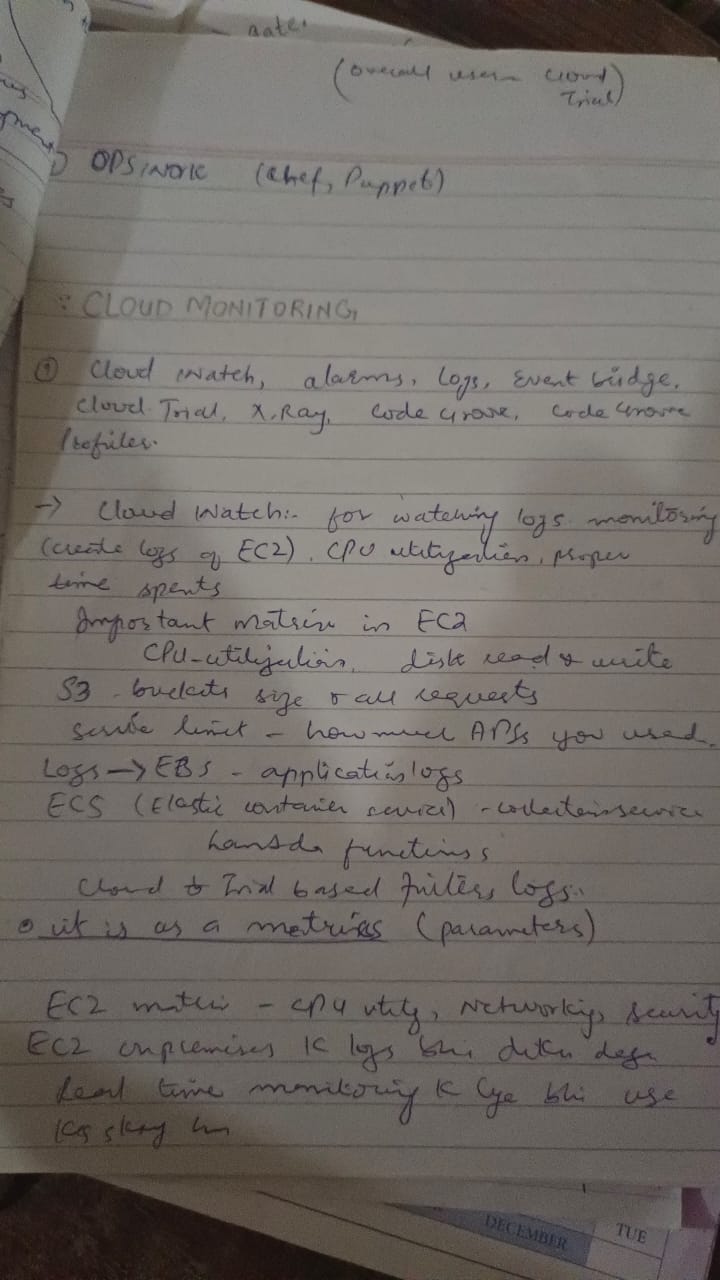 Date.
(overall user cloud
Trial)
OPSWORK (Chef, Puppet)
: CLOUD MONITORING
① Cloud Watch, alarms, logs, Event bridge,
Cloud Trial, X.Ray, Code Grove, Code Grove
Profiler.
→ Cloud Watch:- for watching logs monitoring
(create logs of EC2). CPU utilization, proper
time spents
Important matrix in EC2
CPU-utilization, disk read & write
S3 - buckets size & all requests
limit - how much APIs you used.
Logs → EBS - application logs
ECS (Elastic container service) -
Lambda functions
Cloud Trial based filters logs.
• it is as a metrics (parameters)
EC2 - CPU utility, Networking, security
EC2 onpremises K logs bhi
Real time monitoring K lye bhi use
DECEMBER
TUE